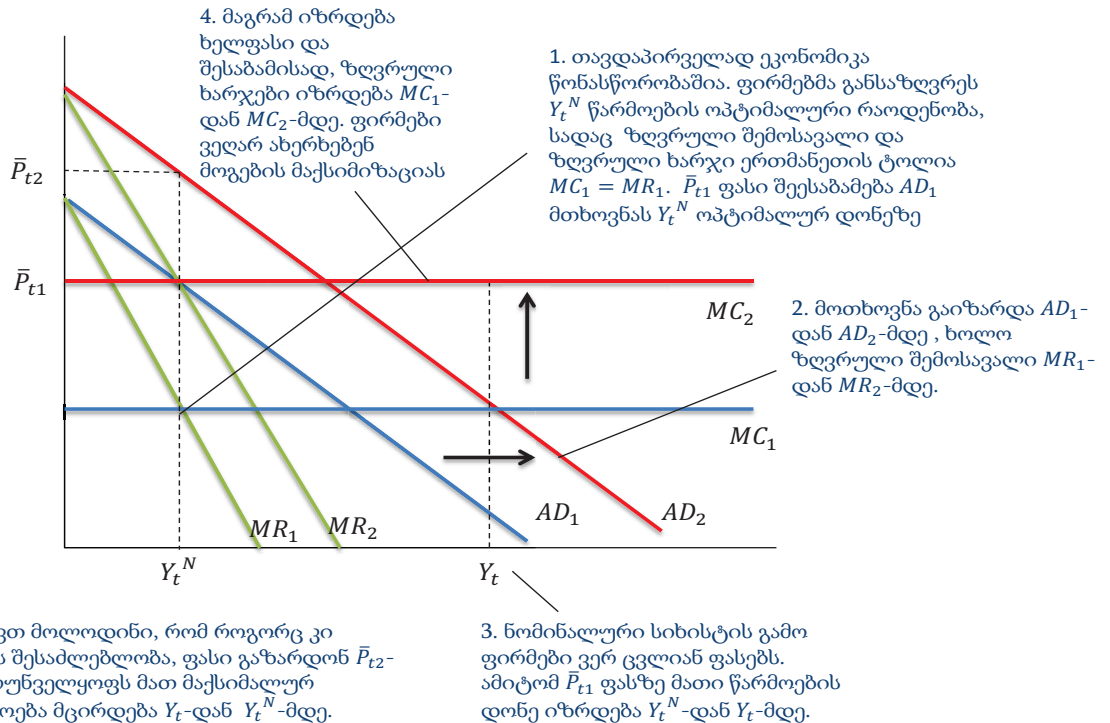 4. მაგრამ იზრდება
ხელფასი და
შესაბამისად, ზღვრული
ხარჯები იზრდება MC₁-
დან MC₂-მდე. ფირმები
ვეღარ ახერხებენ
მოგების მაქსიმიზაციას
1. თავდაპირველად ეკონომიკა
წონასწორობაშია. ფირმებმა განსაზღვრეს
Yₜᴺ წარმოების ოპტიმალური რაოდენობა,
სადაც ზღვრული შემოსავალი და
ზღვრული ხარჯი ერთმანეთის ტოლია
MC₁ = MR₁. P̄ₜ₁ ფასი შეესაბამება AD₁
მთხოვნას Yₜᴺ ოპტიმალურ დონეზე
P̄ₜ₂
P̄ₜ₁
MC₂
2. მოთხოვნა გაიზარდა AD₁-
დან AD₂-მდე , ხოლო
ზღვრული შემოსავალი MR₁-
დან MR₂-მდე.
MC₁
AD₁
AD₂
MR₁
MR₂
Yₜᴺ
Yₜ
ვთ მოლოდინი, რომ როგორც კი
ს შესაძლებლობა, ფასი გაზარდონ P̄ₜ₂-
უნველყოფს მათ მაქსიმალურ
ოება მცირდება Yₜ-დან Yₜᴺ-მდე.
3. ნომინალური სიხისტის გამო
ფირმები ვერ ცვლიან ფასებს.
ამიტომ P̄ₜ₁ ფასზე მათი წარმოების
დონე იზრდება Yₜᴺ-დან Yₜ-მდე.